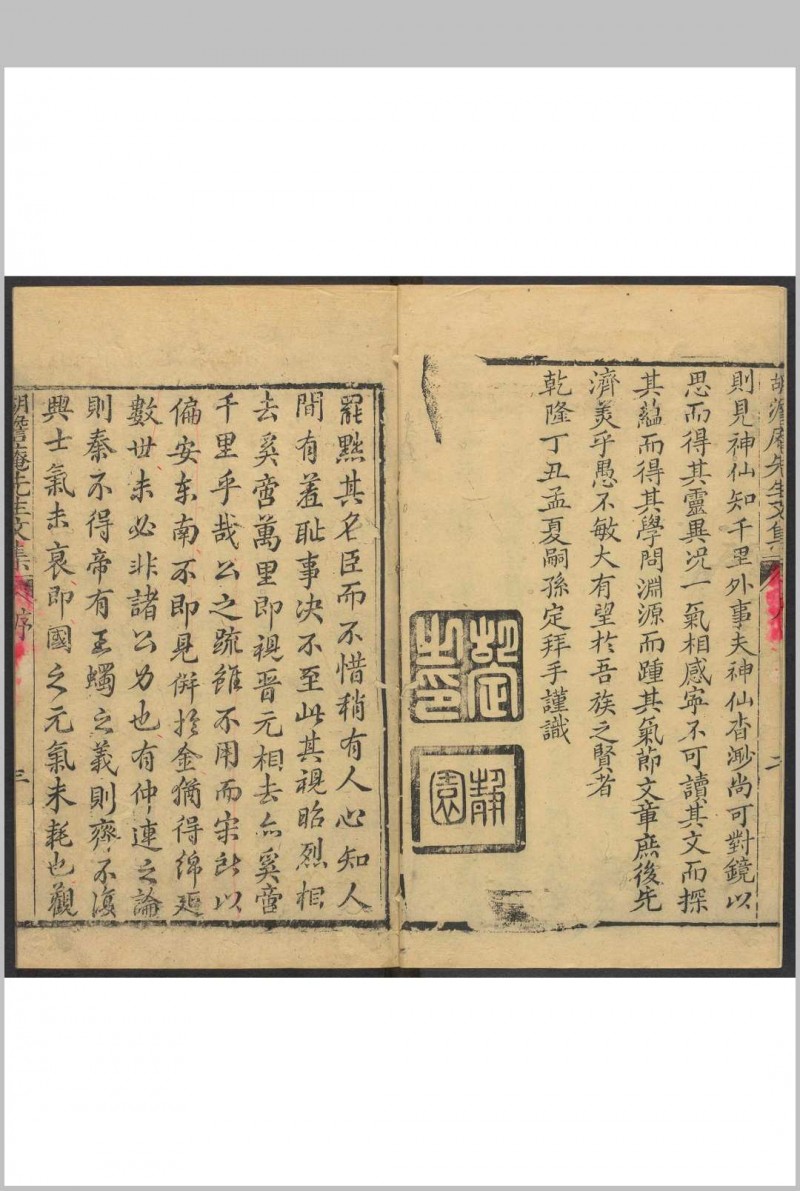 胡澹庵先生文集
二
則見神仙知千里外事夫神仙沓渺尚可對鏡以
思而得其靈異况一氣相感寜不可讀其文而探
其蘊而得其學問淵源而踵其氣節文章庶後先
濟美乎愚不敏大有望於吾族之賢者
乾隆丁丑孟夏嗣孫定拜手謹識
胡定
之印
靜
園
罷黜其名臣而不惜稍有人心知人
間有羞耻事决不至此其視昭烈相
去奚啻萬里即視晋元相去亦奚啻
千里乎哉公之疏雖不用而宋所以
偏安东南不即見併扵金猶得綿延
數世未必非諸公力也有仲連之論
則秦不得帝有王蠋之義則齊不復
興士氣未衰即國之元氣未耗也觀
胡澹庵先生文集
序
三